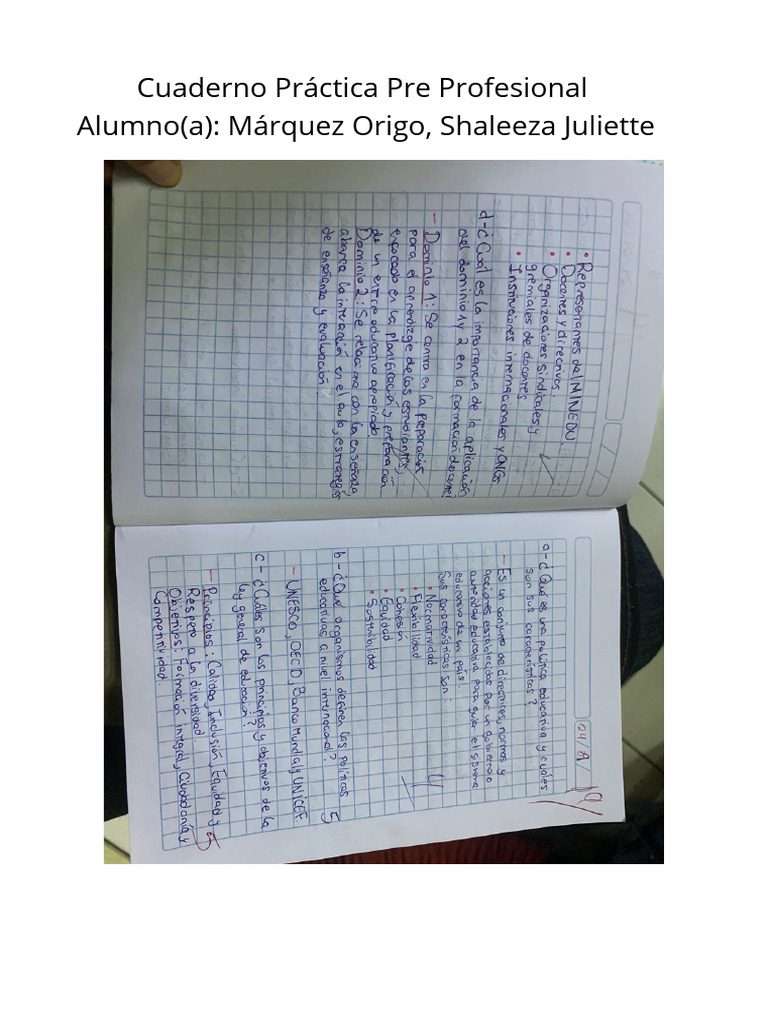 Cuaderno Práctica Pre Profesional
Alumno(a): Márquez Origo, Shaleeza Juliette
• Representantes del MINEDU.
• Docentes y directivos.
• Organizaciones sindicales y
gremiales de docentes
• Instituciones internacionales y ONGs.
d- ¿Cuál es la importancia de la aplicación
del dominio 1 y 2 en la formación docente?
- Dominio 1: Se centra en la preparación
para el aprendizaje de los estudiantes,
enfocado en la planificación y preparación
de un entorno educativo apropiado.
Dominio 2: Se relaciona con la enseñanza,
abarca la interacción en el aula, estrategias
de enseñanza y evaluación.
04/9/
19
a- ¿Qué es una política educativa y cuáles
son sus características?
- Es un conjunto de directrices, normas y
acciones establecidas por un gobierno o
autoridad educativa para guiar el sistema
educativo de un país.
Sus características son:
• Normatividad
• Flexibilidad
• Cohesión
• Equidad
• Sostenibilidad
4
b- ¿Qué organismos definen las políticas
educativas a nivel internacional?
5
- UNESCO, OECD, Banco Mundial y UNICEF.
c- ¿Cuáles son los principios y objetivos de la
ley general de educación?
- Principios: Calidad, Inclusión, Equidad y
Respeto a la diversidad.
5
Objetivos: Formación integral, Ciudadanía y
Competitividad.